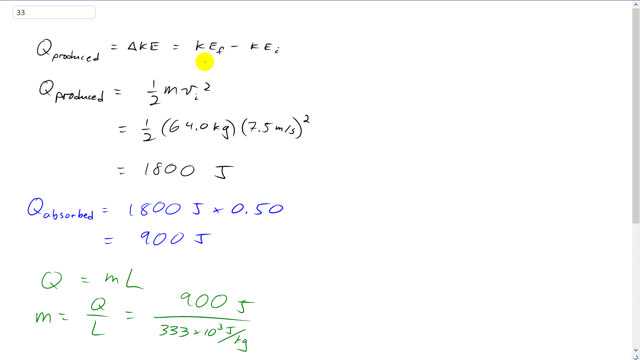 33
Q produced = ΔKE = KE_f - KE_i
Q produced = 1/2 m v_i^2
= 1/2 (64.0 kg) (7.5 m/s)^2
= 1800 J
Q absorbed = 1800 J × 0.50
= 900 J
Q = mL
m = Q/L = 900 J / 333 × 10^3 J/kg